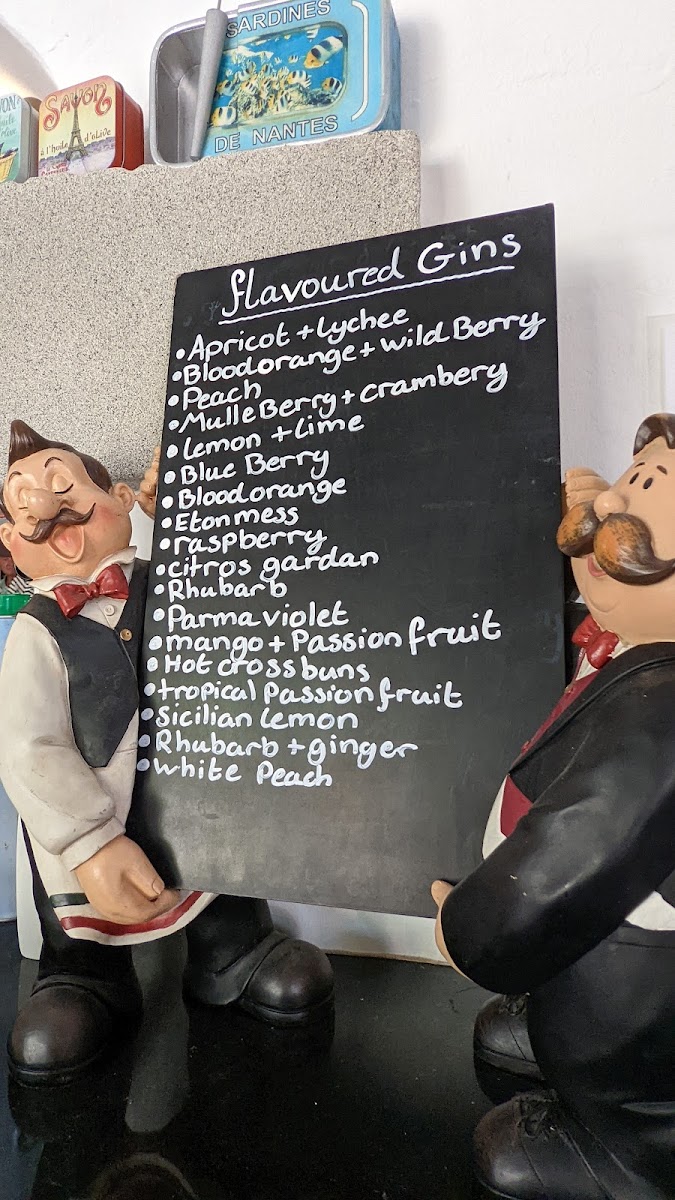 SARDINES
DE NANTES
SAVON
à l'huile d'olive
flavoured Gins
•Apricot + lychee
•Bloodorange + wild Berry
•Peach
•MulleBerry + crambery
•lemon + lime
•Blue Berry
•Bloodorange
•Eton mess
•raspberry
•citros gardan
•Rhubarb
•Parma violet
•mango + Passion fruit
•Hot cross buns
•tropical Passion fruit
•Sicilian lemon
•Rhubarb + ginger
•white Peach